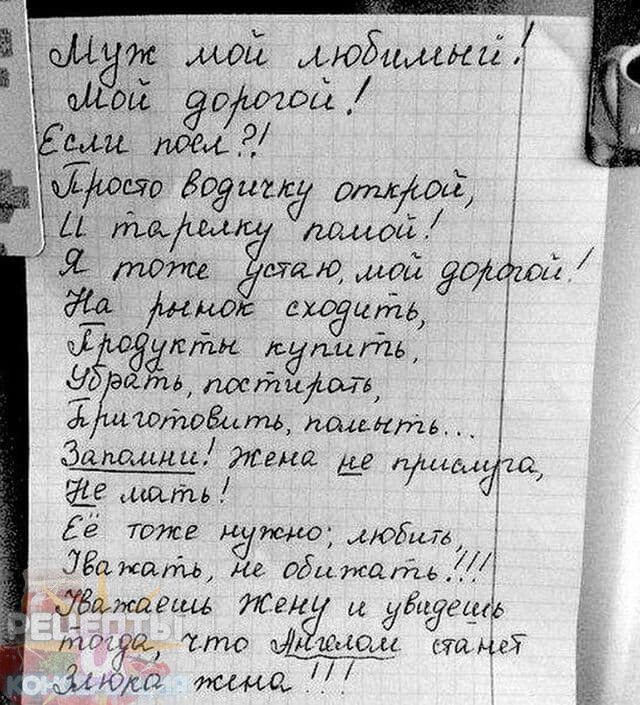 Муж мой любимый!
Мой дорогой!
Если поел?!
Просто водичку открой,
И тарелку помой!
Я тоже устаю, мой дорогой!
На рынок сходить,
Продукты купить,
Убрать, постирать,
Приготовить, помыть...
Запомни! Жена не прислуга,
Не мать!
Её тоже нужно; любить,
Уважать, не обижать!!!
Уважаешь жену и увидешь
тогда, что Ангелом станет
Злюка жена!!!
РЕЦЕПТЫ